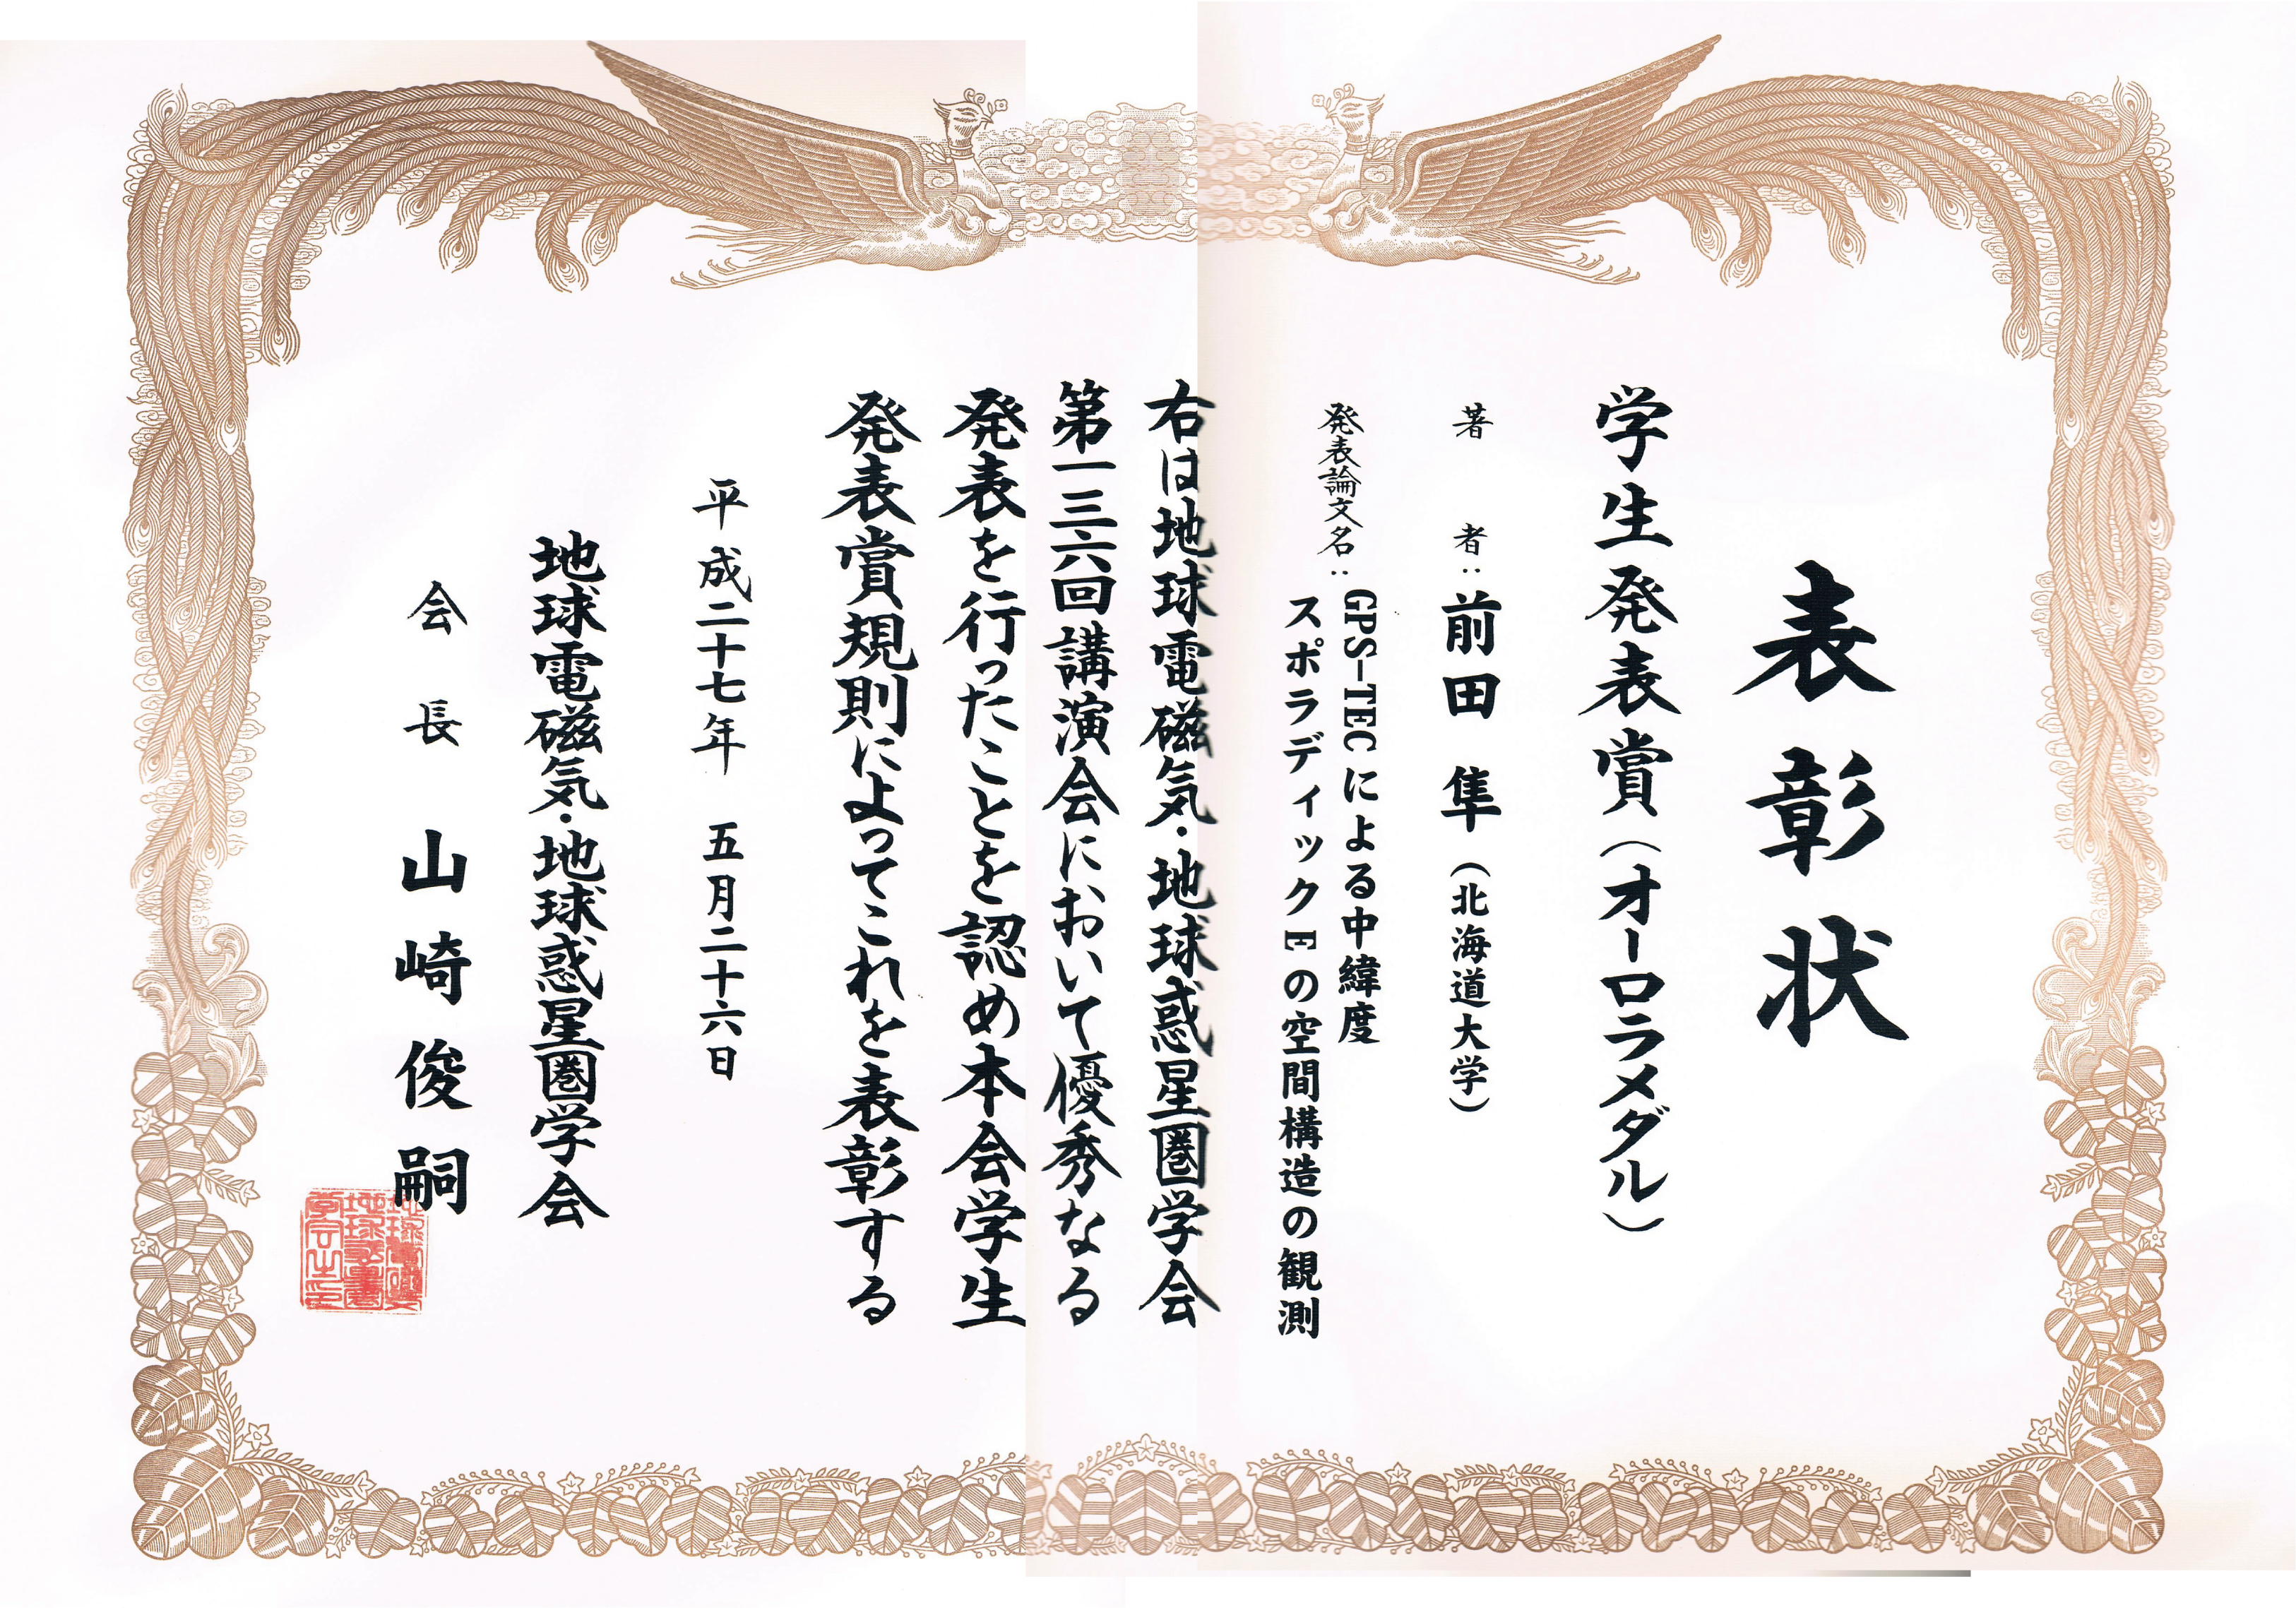 表彰状
学生発表賞(オーロラメダル)
著者:前田 隼(北海道大学)
発表論文名:GPS-TECによる中緯度
スポラディックEの空間構造の観測
右は地球電磁気・地球惑星圏学会
第一三六回講演会において優秀なる
発表を行ったことを認め本会学生
発表賞規則によってこれを表彰する
平成二十七年 五月二十六日
地球電磁気・地球惑星圏学会
会長 山崎俊嗣